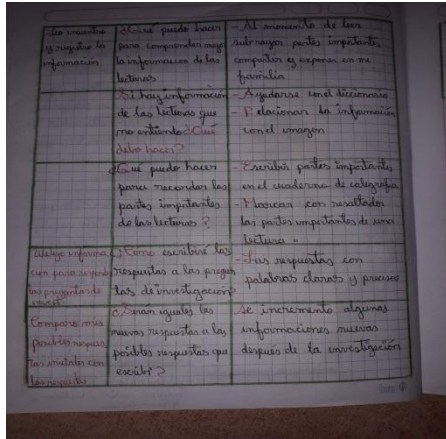 Leo encuentro
y registro la
información
¿Qué puedo hacer
para comprender mejor
la información de las
lecturas
- Al momento de leer
subrayar partes importantes
compartir y exponer en mi
familia
Si hay información
de las lecturas que
no entiendo ¿Qué
debo hacer?
- Ayudarse con el diccionario
- Relacionar la información
con el imagen
¿Qué puedo hacer
para recordar las
partes importantes
de las lecturas?
- Escribir partes importantes
en el cuaderno de caligrafía
- Marcar con resaltador
las partes importantes de una
lectura
informa
ción para responder
las preguntas de
invest.
¿Cómo escribiré las
respuestas a las pregun
tas de investigación?
- Las respuestas con
palabras claras y precisas
Comparo mis
posibles respues
tas iniciales con
las
¿Serán iguales las
nuevas respuestas a las
posibles respuestas que
escribí?
Se incremento algunas
informaciones nuevas
después de la investigación